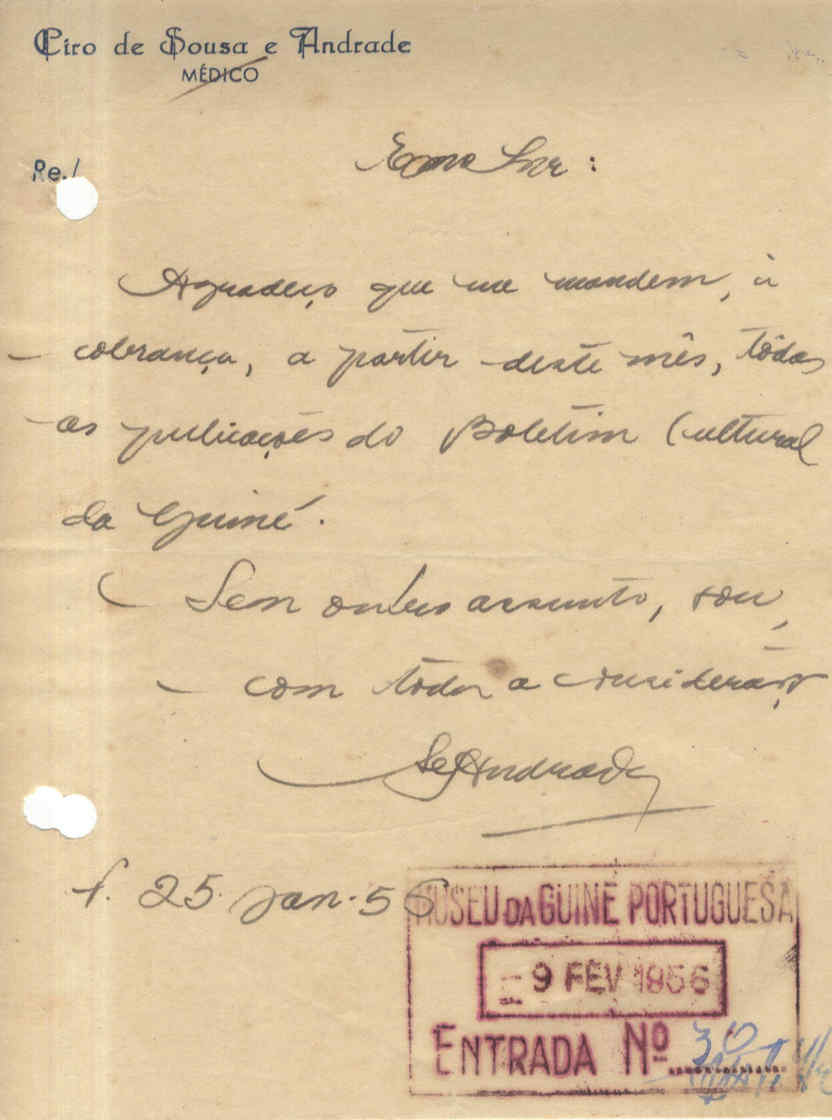 Ciro de Sousa e Andrade
MÉDICO
Re./
Exmo Snr:
Agradeço que me mandem, à
cobrança, a partir deste mês, tôdas
as publicações do Boletim Cultural
da Guiné.
Sem outro assunto, sou,
com tôda a consideração
SeAndrade
f. 25. Jan. 56
MUSEU DA GUINÉ PORTUGUESA
- 9 FEV 1956
ENTRADA Nº 30